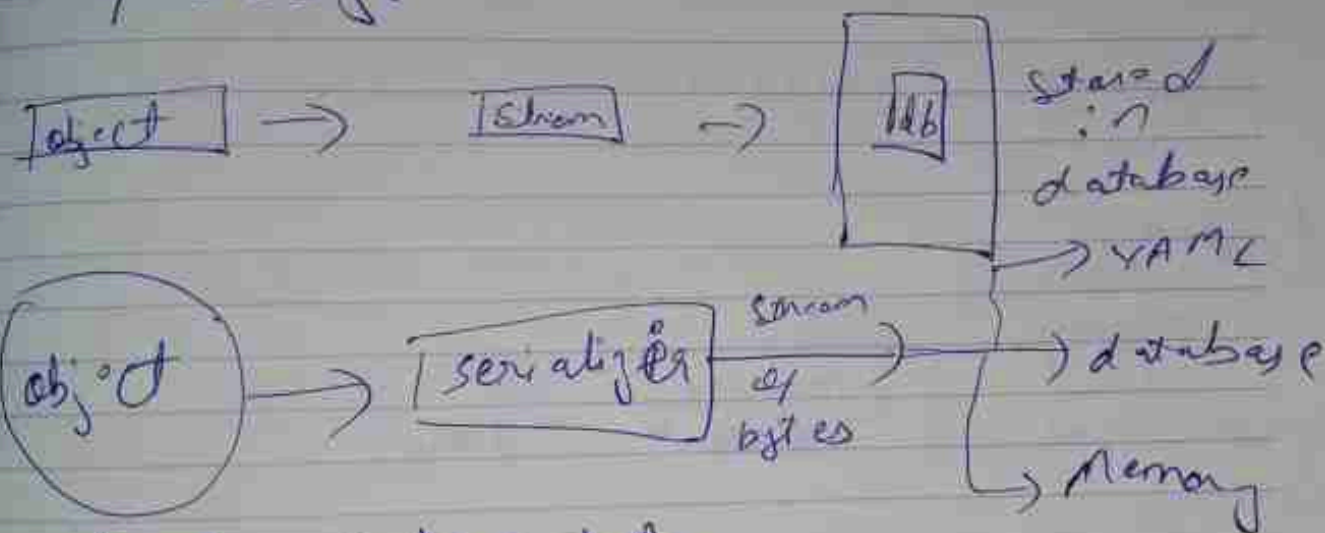 object → stream → db
stored
in
database
→ YAML
object → serializer stream of bytes → database
→ Memory